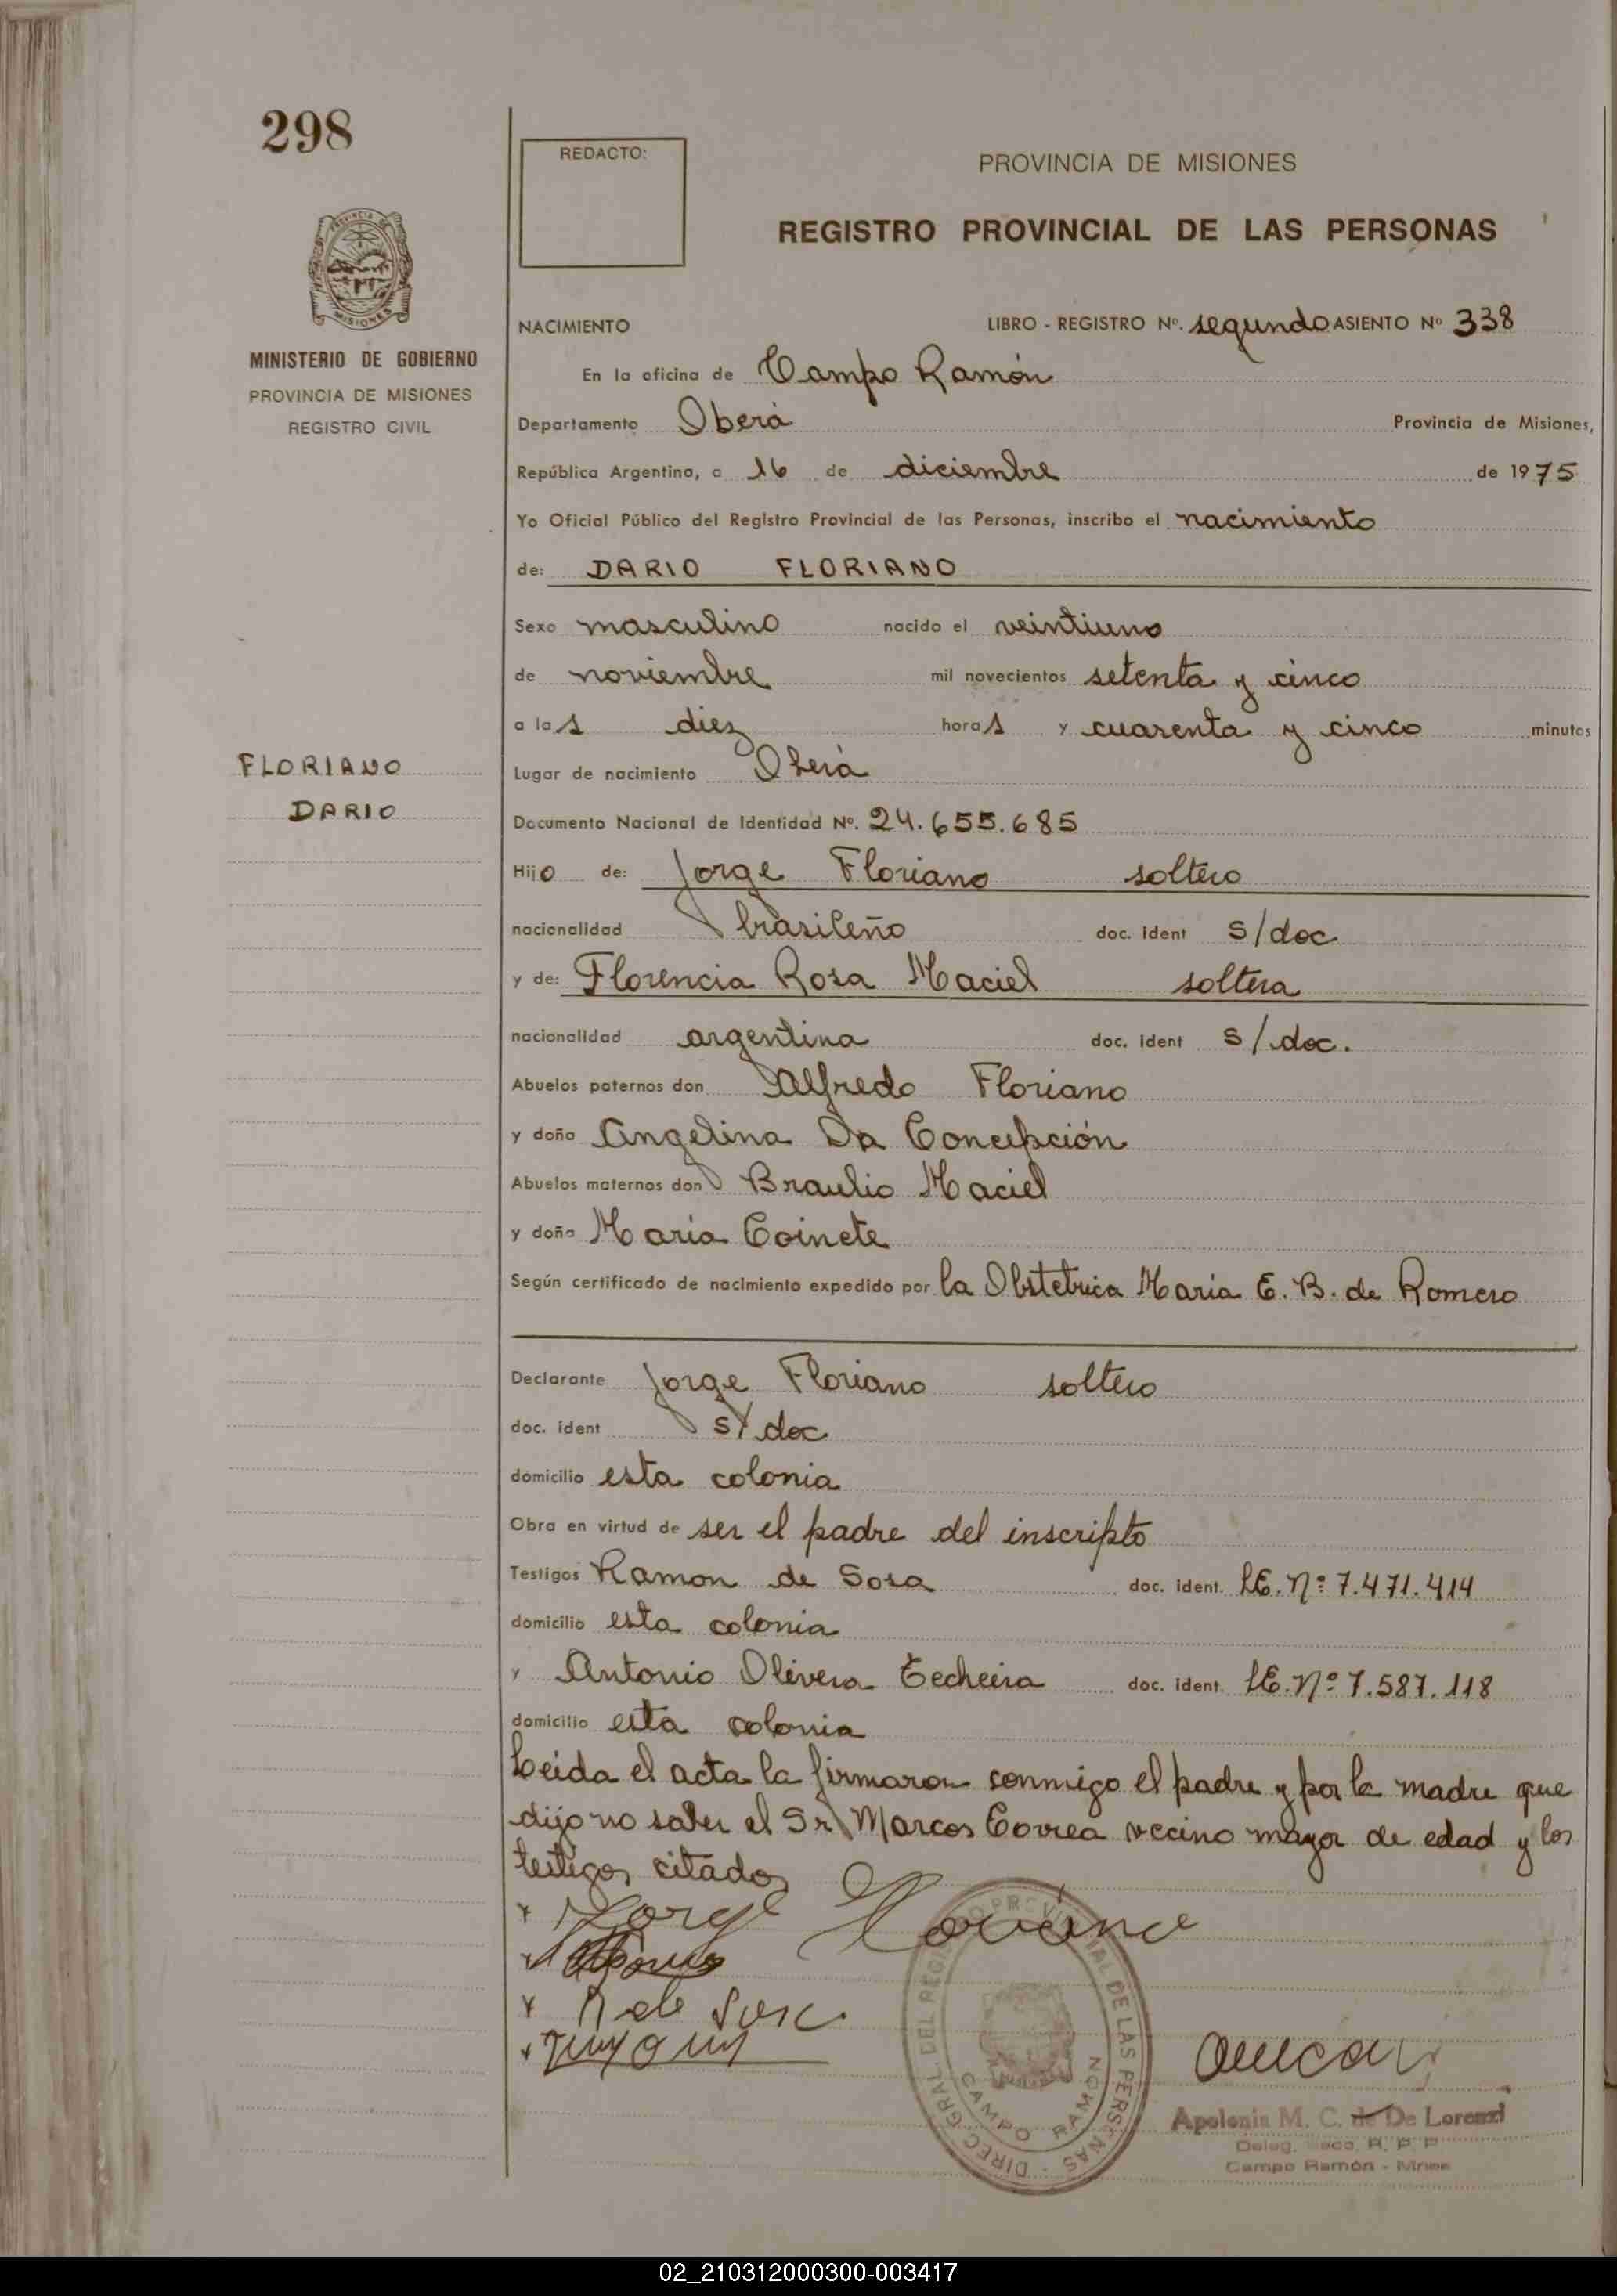 298
REDACTO:
PROVINCIA DE MISIONES
REGISTRO PROVINCIAL DE LAS PERSONAS
PROVINCIA DE
MISIONES
MINISTERIO DE GOBIERNO
PROVINCIA DE MISIONES
REGISTRO CIVIL
NACIMIENTO LIBRO - REGISTRO Nº. segundo ASIENTO Nº 338
En la oficina de Campo Ramón
Departamento Oberá Provincia de Misiones,
República Argentina, a 16 de diciembre de 1975
Yo Oficial Público del Registro Provincial de las Personas, inscribo el nacimiento
de: DARIO FLORIANO
Sexo masculino nacido el veintiuno
de noviembre mil novecientos setenta y cinco
a las diez horas y cuarenta y cinco minutos
FLORIANO
DARIO
Lugar de nacimiento Oberá
Documento Nacional de Identidad Nº. 24.655.685
Hijo de: Jorge Floriano soltero
nacionalidad brasileño doc. ident s/doc
y de: Florencia Rosa Maciel soltera
nacionalidad argentina doc. ident s/doc.
Abuelos paternos don Alfredo Floriano
y doña Angelina Da Concepción
Abuelos maternos don Braulio Maciel
y doña María Coinete
Según certificado de nacimiento expedido por la Obstetrica María E. B. de Romero
Declarante Jorge Floriano soltero
doc. ident s/doc
domicilio esta colonia
Obra en virtud de ser el padre del inscripto
Testigos Ramon de Sosa doc. ident. LE. Nº 7.471.414
domicilio esta colonia
y Antonio Olivera Techeira doc. ident. LE. Nº 7.587.118
domicilio esta colonia
Leida el acta la firmaron conmigo el padre y por la madre que
dijo no saber el Sr Marcos Correa vecino mayor de edad y los
testigos citados
Jorge Floriano
R de Sosa
DIREC. GRAL. DEL REGISTRO PROVINCIAL DE LAS PERSONAS
CAMPO RAMON
Apolonia M. C. de De Lorenzi
Deleg. R. P. P
Campo Ramón - Mnes
02_210312000300-003417